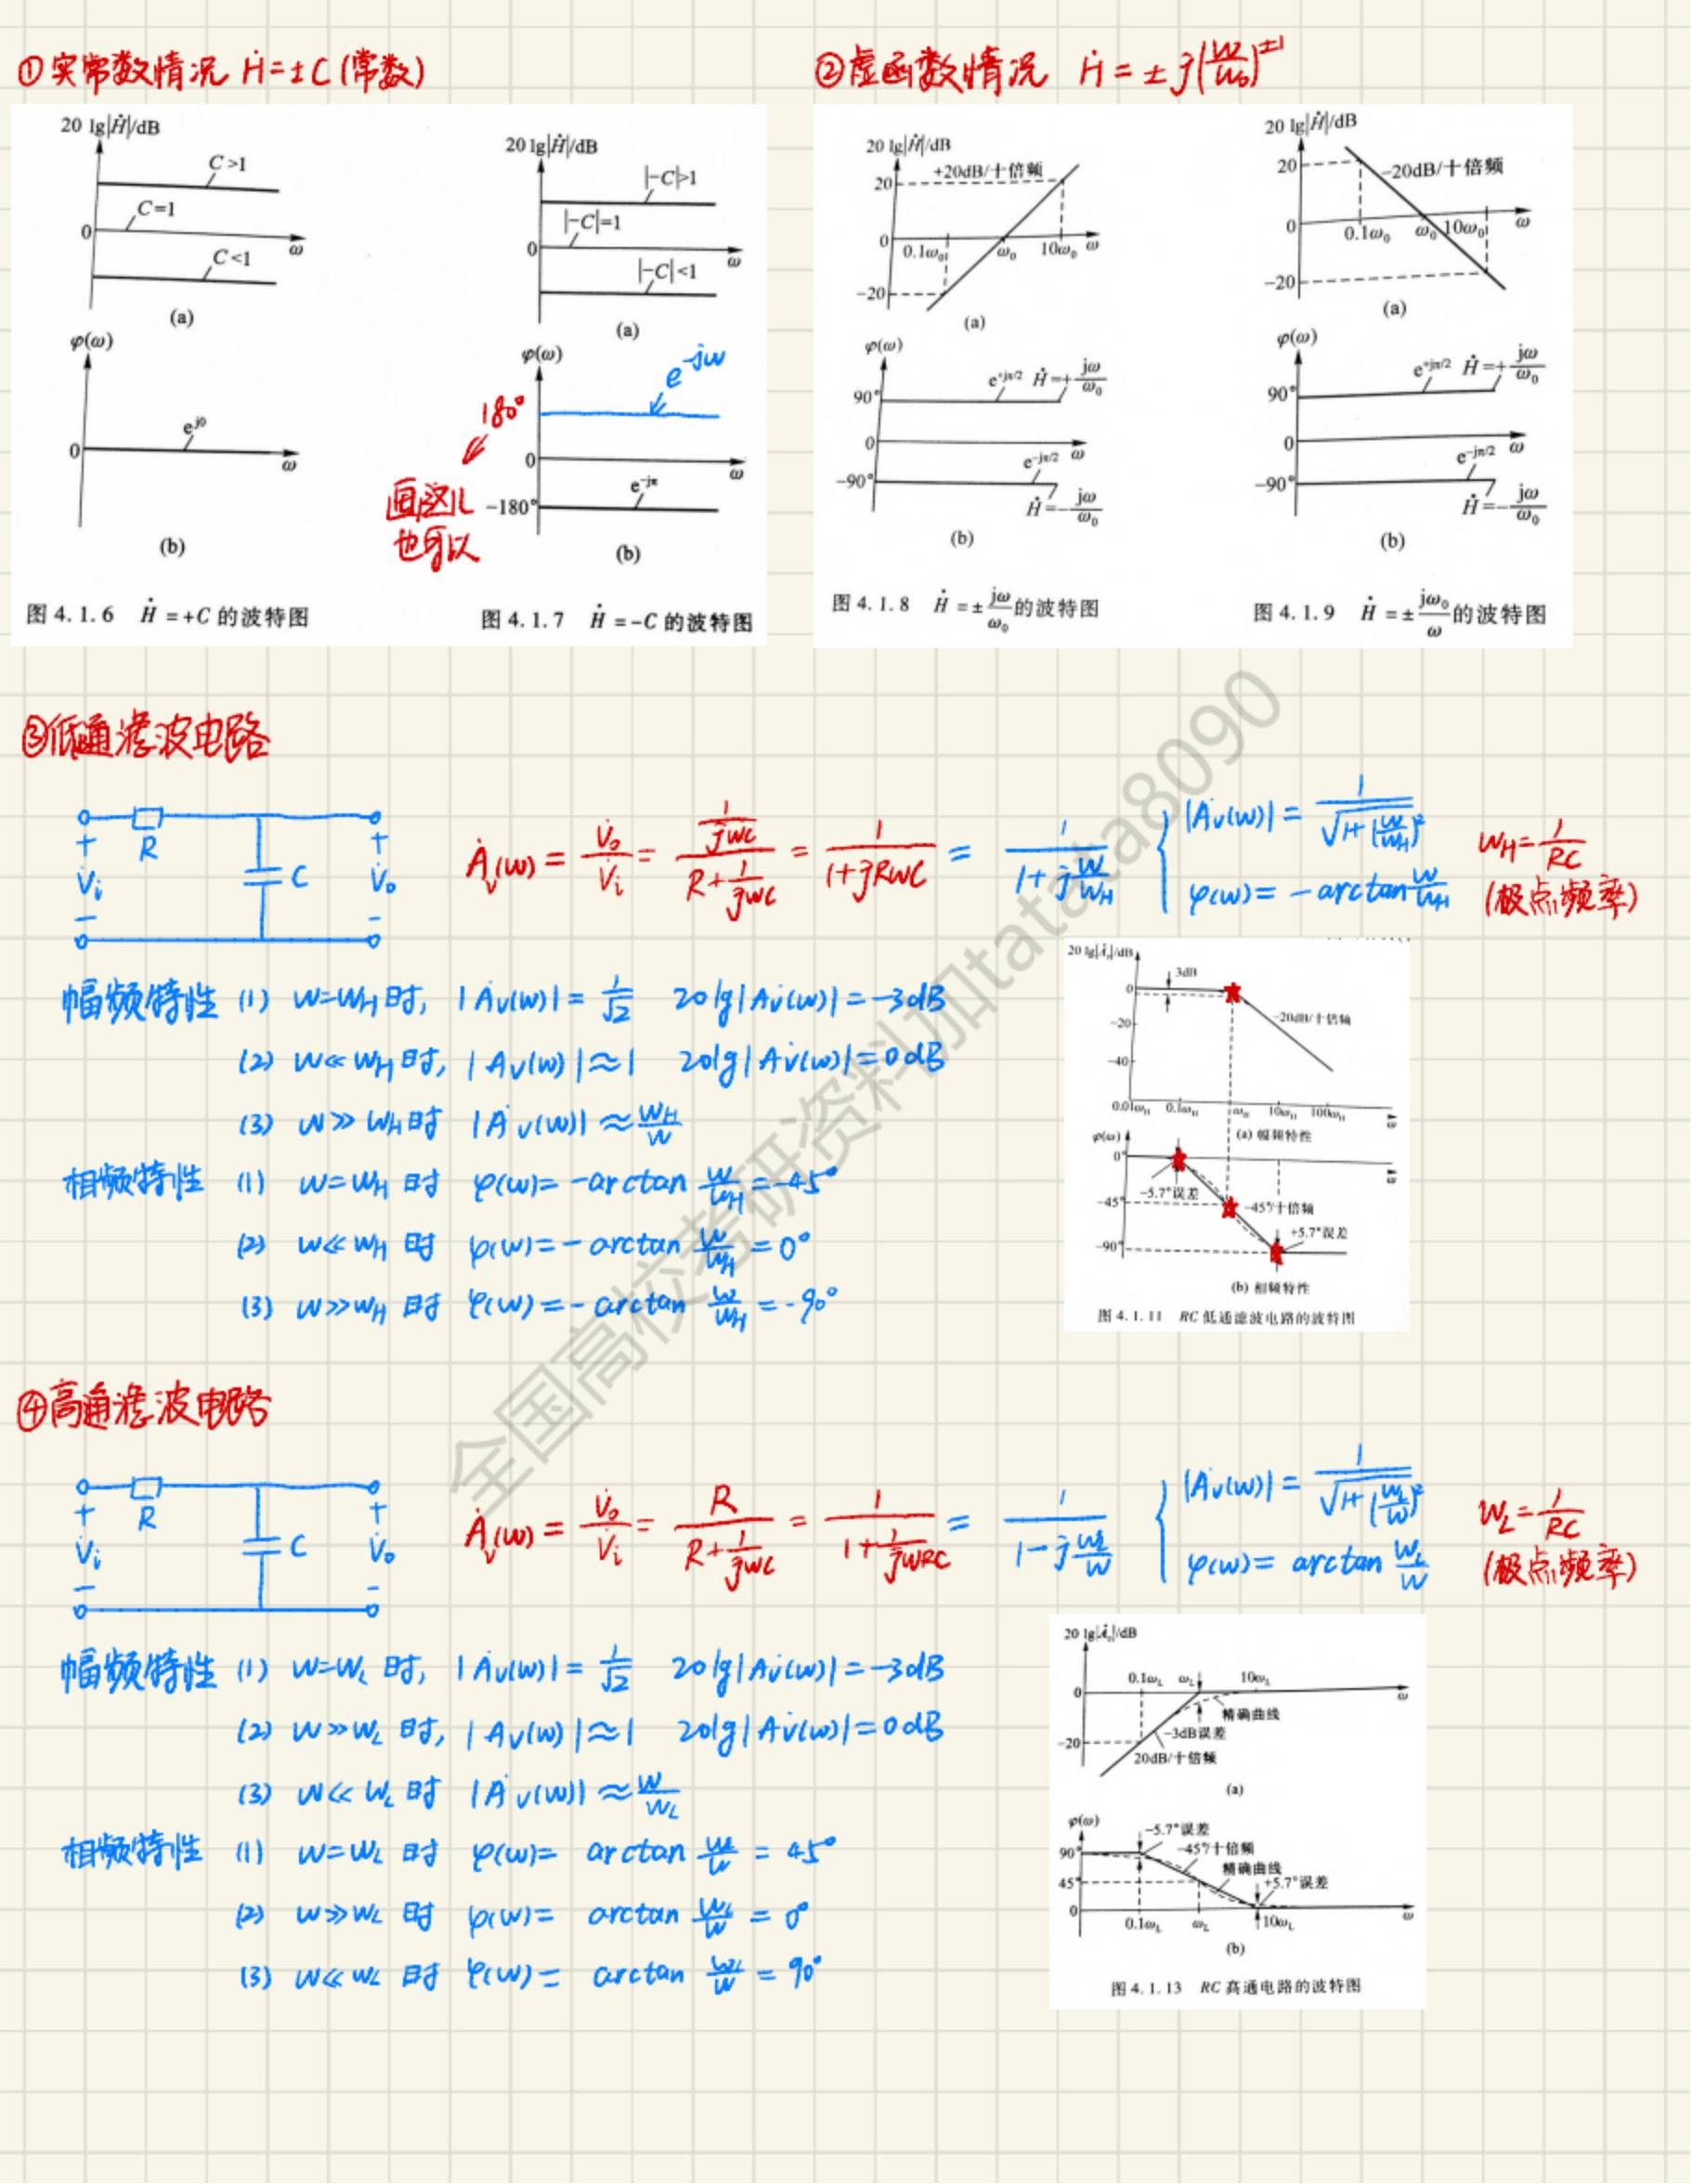 ①实常数情况 Ḣ=±C(常数)
②虚函数情况 Ḣ=±j(w/w₀)^±1
20 lg|Ḣ|/dB
C>1
C=1
0
ω
C<1
(a)
φ(ω)
e^j0
0
ω
(b)
图 4.1.6 Ḣ=+C 的波特图
20 lg|Ḣ|/dB
|-C|>1
|-C|=1
0
ω
|-C|<1
(a)
φ(ω)
e^-jw
180°
0
ω
画这儿
也可以
-180°
e^-jπ
(b)
图 4.1.7 Ḣ=-C 的波特图
20 lg|Ḣ|/dB
+20dB/十倍频
20
0
0.1ω₀ ω₀ 10ω₀ ω
-20
(a)
φ(ω)
e^+jπ/2 Ḣ=+jω/ω₀
90°
0
e^-jπ/2 ω
-90°
Ḣ=-jω/ω₀
(b)
图 4.1.8 Ḣ=±jω/ω₀的波特图
20 lg|Ḣ|/dB
20
-20dB/十倍频
0
0.1ω₀ ω₀ 10ω₀ ω
-20
(a)
φ(ω)
e^+jπ/2 Ḣ=+jω/ω₀
90°
0
e^-jπ/2 ω
-90°
Ḣ=-jω/ω₀
(b)
图 4.1.9 Ḣ=±jω₀/ω的波特图
③低通滤波电路
R
C
+
V̇i
-
+
V̇o
-
Ȧv(w) = V̇o/V̇i = (1/jwC)/(R+1/jwC) = 1/(1+jRwC) = 1/(1+j w/wH)
|Ȧv(w)| = 1/√(1+(w/wH)²)
φ(w) = -arctan w/wH
wH=1/RC
(极点频率)
幅频特性 (1) w=wH时, |Ȧv(w)|=1/√2 20lg|Ȧv(w)|=-3dB
(2) w≪wH时, |Ȧv(w)|≈1 20lg|Ȧv(w)|=0dB
(3) w≫wH时 |Ȧv(w)|≈wH/w
相频特性 (1) w=wH时 φ(w)=-arctan w/wH=-45°
(2) w≪wH时 φ(w)=-arctan w/wH=0°
(3) w≫wH时 φ(w)=-arctan w/wH=-90°
3dB
0
-20
-20dB/十倍频
-40
0.01ωH 0.1ωH ωH 10ωH 100ωH ω
(a) 幅频特性
φ(ω)
0°
ω
-5.7°误差
-45°
-45°/十倍频
+5.7°误差
-90°
(b) 相频特性
图 4.1.11 RC 低通滤波电路的波特图
全国高校考研资料加tatata8090
④高通滤波电路
R
C
+
V̇i
-
+
V̇o
-
Ȧv(w) = V̇o/V̇i = R/(R+1/jwC) = 1/(1+1/jwRC) = 1/(1-j wL/w)
|Ȧv(w)| = 1/√(1+(wL/w)²)
φ(w) = arctan wL/w
wL=1/RC
(极点频率)
幅频特性 (1) w=wL时, |Ȧv(w)|=1/√2 20lg|Ȧv(w)|=-3dB
(2) w≫wL时, |Ȧv(w)|≈1 20lg|Ȧv(w)|=0dB
(3) w≪wL时 |Ȧv(w)|≈w/wL
相频特性 (1) w=wL时 φ(w)= arctan wL/w = 45°
(2) w≫wL时 φ(w)= arctan wL/w = 0°
(3) w≪wL时 φ(w)= arctan wL/w = 90°
0.1ωL ωL 10ωL
0
ω
精确曲线
-3dB误差
-20
20dB/十倍频
(a)
φ(ω)
-5.7°误差
90°
-45°/十倍频
精确曲线
45°
+5.7°误差
0
0.1ωL ωL 10ωL ω
(b)
图 4.1.13 RC 高通电路的波特图